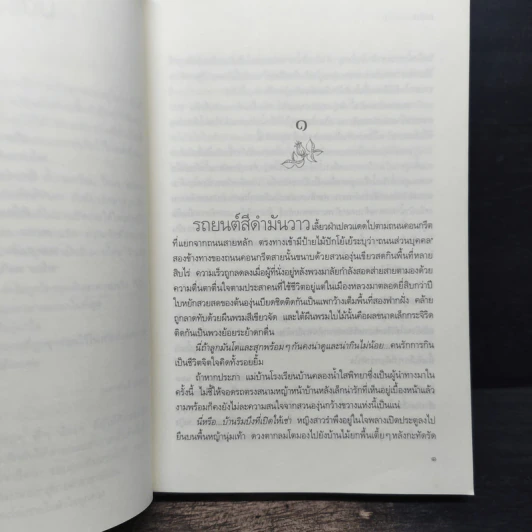 ๑
รถยนต์สีดำมันวาว เลี้ยวฝ่าเปลวแดดไปตามถนนคอนกรีต
ที่แยกจากถนนสายหลัก ตรงทางเข้ามีป้ายไม้ปักโย้เย้ระบุว่า ‘ถนนส่วนบุคคล’
สองข้างทางของถนนคอนกรีตสายนั้นขนาบด้วยสวนองุ่นเขียวสดกินพื้นที่หลาย
สิบไร่ ความเร็วรถถูกลดลงเมื่อผู้ที่นั่งอยู่หลังพวงมาลัยกำลังสอดส่ายสายตามองด้วย
ความตื่นตาตื่นใจตามประสาคนที่ใช้ชีวิตอยู่แต่ในเมืองหลวงมาตลอดยี่สิบกว่าปี
ใบหยักสวยสดของต้นองุ่นเบียดชิดติดกันเป็นแพกว้างเต็มพื้นที่สองฟากฝั่ง คล้าย
ถูกลาดทับด้วยผืนพรมสีเขียวจัด และใต้ผืนพรมใบไม้นั้นคือผลขนาดเล็กกระจิริด
ติดกันเป็นพวงย้อยระย้าดกตื่น
นี่ถ้าลูกมันโตและสุกพร้อมๆ กันคงน่าดูและน่ากินไม่น้อย คนรักการกิน
เป็นชีวิตจิตใจคิดทั้งรอยยิ้ม
ถ้าหากประภา แม่บ้านโรงเรียนบ้านคลองน้ำใสพิทยาซึ่งเป็นผู้นำทางมาใน
ครั้งนี้ ไม่ชี้ให้จอดรถตรงสนามหญ้าหน้าบ้านหลังเล็กน่ารักที่เห็นอยู่เบื้องหน้าแล้ว
งามพร้อมก็คงยังไม่ละความสนใจจากสวนองุ่นกว้างขวางแห่งนี้เป็นแน่
นี่หรือ...บ้านริมบึงที่เปิดให้เช่า หญิงสาวรำพึงอยู่ในใจพลางเปิดประตูลงไป
ยืนบนพื้นหญ้านุ่มเท้า ดวงตากลมโตมองไปยังบ้านไม้ยกพื้นเตี้ยๆ หลังกะทัดรัด